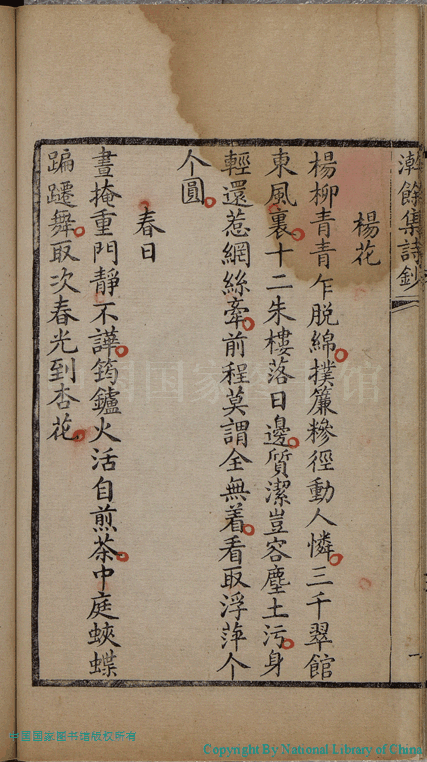 澣餘集詩鈔
楊花
楊柳青青乍脫綿撲簾糝徑動人憐三千翠館
東風裏十二朱樓落日邊質潔豈容塵土污身
輕還惹網絲牽前程莫謂全無着看取浮萍个
个圓
春日
晝掩重門靜不譁筠鑪火活自煎茶中庭蛺蝶
蹁躚舞取次春光到杏花
一
中国国家图书馆
中国国家图书馆版权所有
Copyright By National Library of China